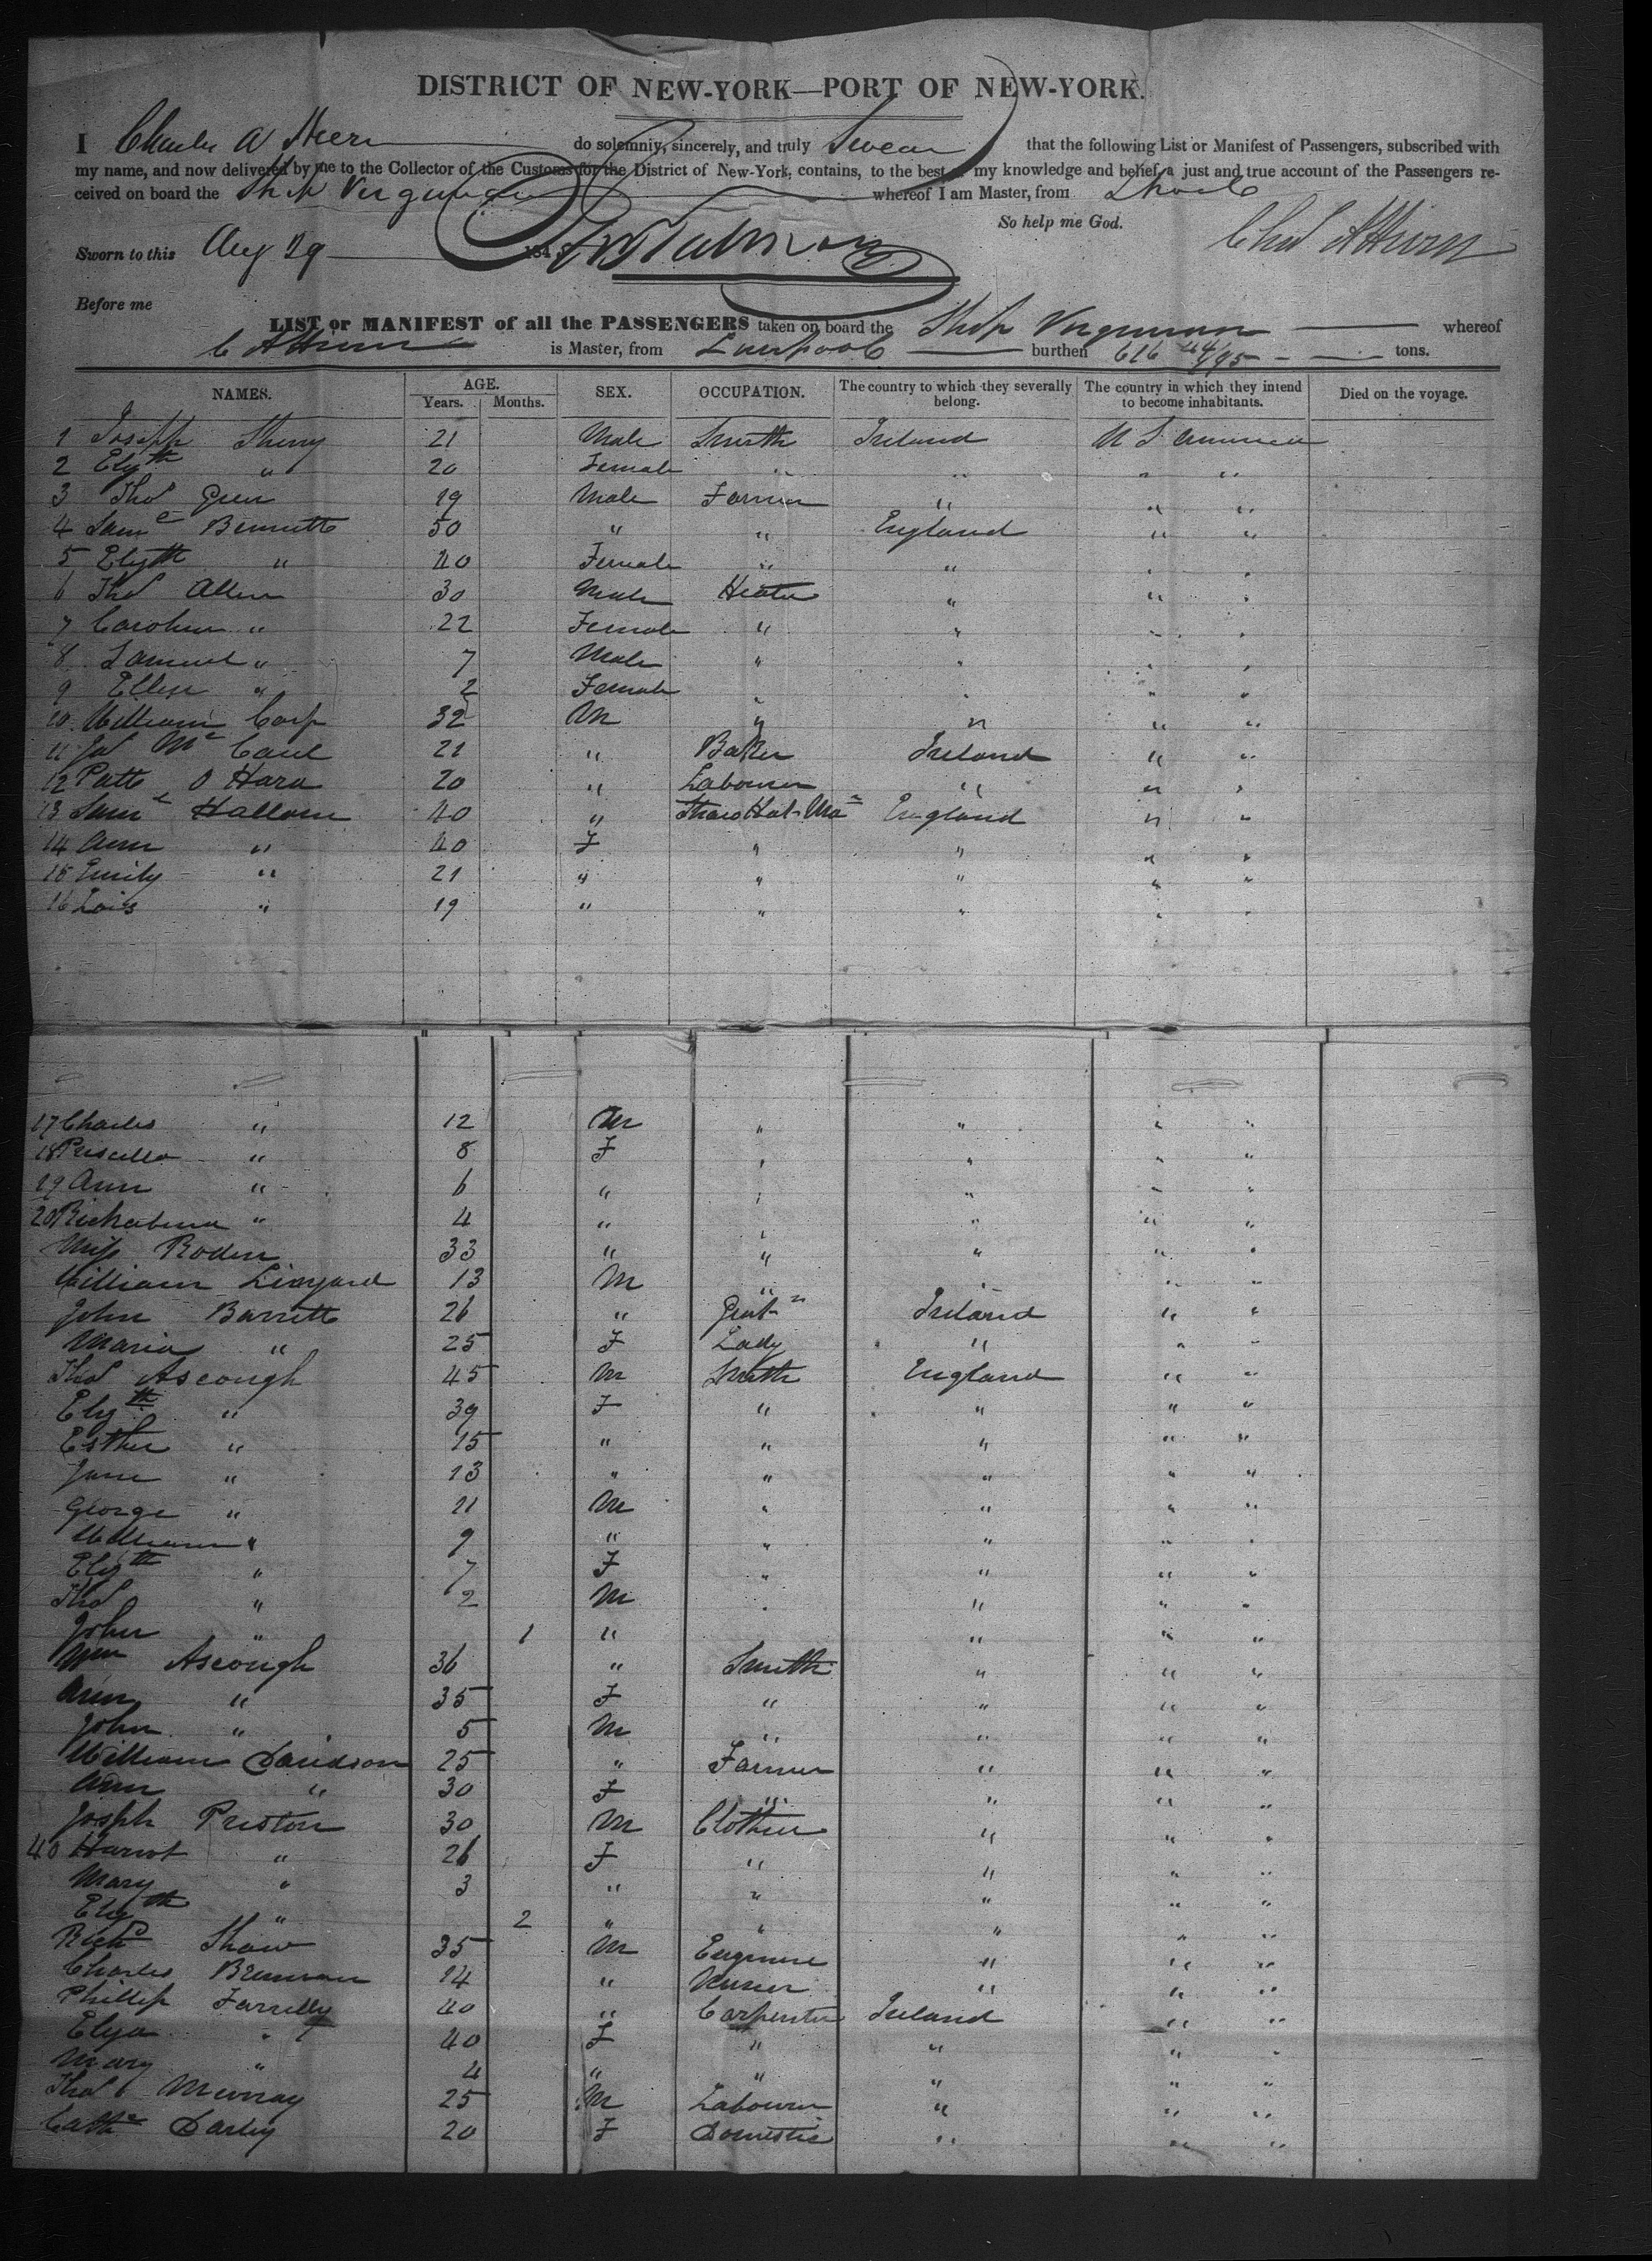 DISTRICT OF NEW-YORK—PORT OF NEW-YORK.
I Charles A Heern do solemnly, sincerely, and truly Swear that the following List or Manifest of Passengers, subscribed with
my name, and now delivered by me to the Collector of the Customs for the District of New-York, contains, to the best of my knowledge and belief, a just and true account of the Passengers re-
ceived on board the Ship Virginian whereof I am Master, from
So help me God.
Sworn to this Aug 29 184
Before me
LIST or MANIFEST of all the PASSENGERS taken on board the Ship Virginian whereof
is Master, from Liverpool burthen 616 tons.
NAMES. AGE. Years. Months. SEX. OCCUPATION. The country to which they severally belong. The country in which they intend to become inhabitants. Died on the voyage.
1 Joseph Sherry 21 Male Smith Ireland U S America
2 Elizth " 20 Female " " " "
3 Thos Green 19 Male Farmer " " "
4 Saml Bennett 50 " " England " "
5 Elizth " 40 Female " " " "
6 Thos Allen 30 Male " " "
7 Caroline " 22 Female " " " "
8 Samuel " 7 Male " " " "
9 Ellen " 2 Female " " " "
10 William Corp 32 M " " " "
11 Jas Mc Caul 21 " Baker Ireland " "
12 Patk O Hara 20 " Labourer " " "
13 Saml Hallam 40 " Straw Hat Mar England " "
14 Ann " 40 F " " " "
15 Emily " 21 " " " " "
16 Lois " 19 " " " " "
17 Charles " 12 M " " " "
18 Priscilla " 8 F " " " "
19 Ann " 6 " " " " "
20 " 4 " " " " "
Miss Roden 33 " " " " "
William Linyard 13 M " " " "
John Barrett 26 " Gent Ireland " "
Maria " 25 F Lady " " "
Thos Ascough 45 M Smith England " "
Elizth " 39 F " " " "
Esther " 15 " " " " "
Jane " 13 " " " " "
George " 11 M " " " "
William " 9 " " " " "
Elizth " 7 F " " " "
Thos " 2 M " " " "
John " 1 " " " "
Wm Ascough 36 " Smith " " "
Ann " 35 F " " " "
John " 5 M " " " "
William Davidson 25 " Farmer " " "
Ann " 30 F " " " "
Joseph Preston 30 M Clothier " " "
40 Hariot " 26 F " " " "
Mary " 3 " " " " "
Elizth " 2 " " " " "
Richd Shaw 35 M Engineer " " "
Charles Brennan 14 " " " "
Phillip Farrelly 40 " Carpenter Ireland " "
Eliza " 40 F " " " "
Mary " 4 " " " " "
Thos Murray 25 M Labourer " " "
Cathe Darley 20 F Domestic " " "